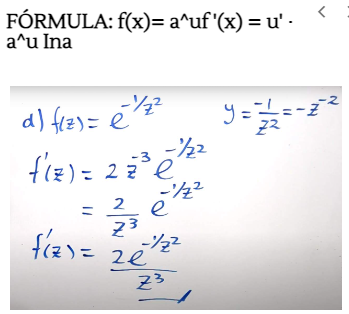 FÓRMULA: f(x)= a^uf '(x) = u' ·
a^u lna
d) f(z) = e^{-1/z^2}    y = \frac{-1}{z^2} = -z^{-2}
f'(z) = 2 z^{-3} e^{-1/z^2}
= \frac{2}{z^3} e^{-1/z^2}
f'(z) = \frac{2e^{-1/z^2}}{z^3}